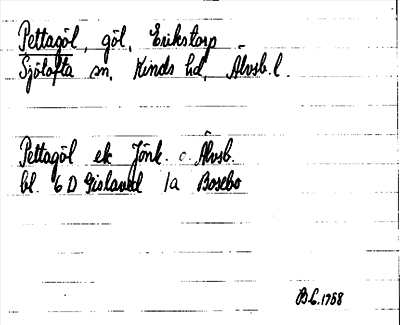 Pettagöl, göl, Erikstorp
Sjötofta sn, Kinds hd, Älvsb. l.
Pettagöl ek Jönk. o. Älvsb.
bl. 6 D Gislaved 1a Bosebo
B.G. 1758